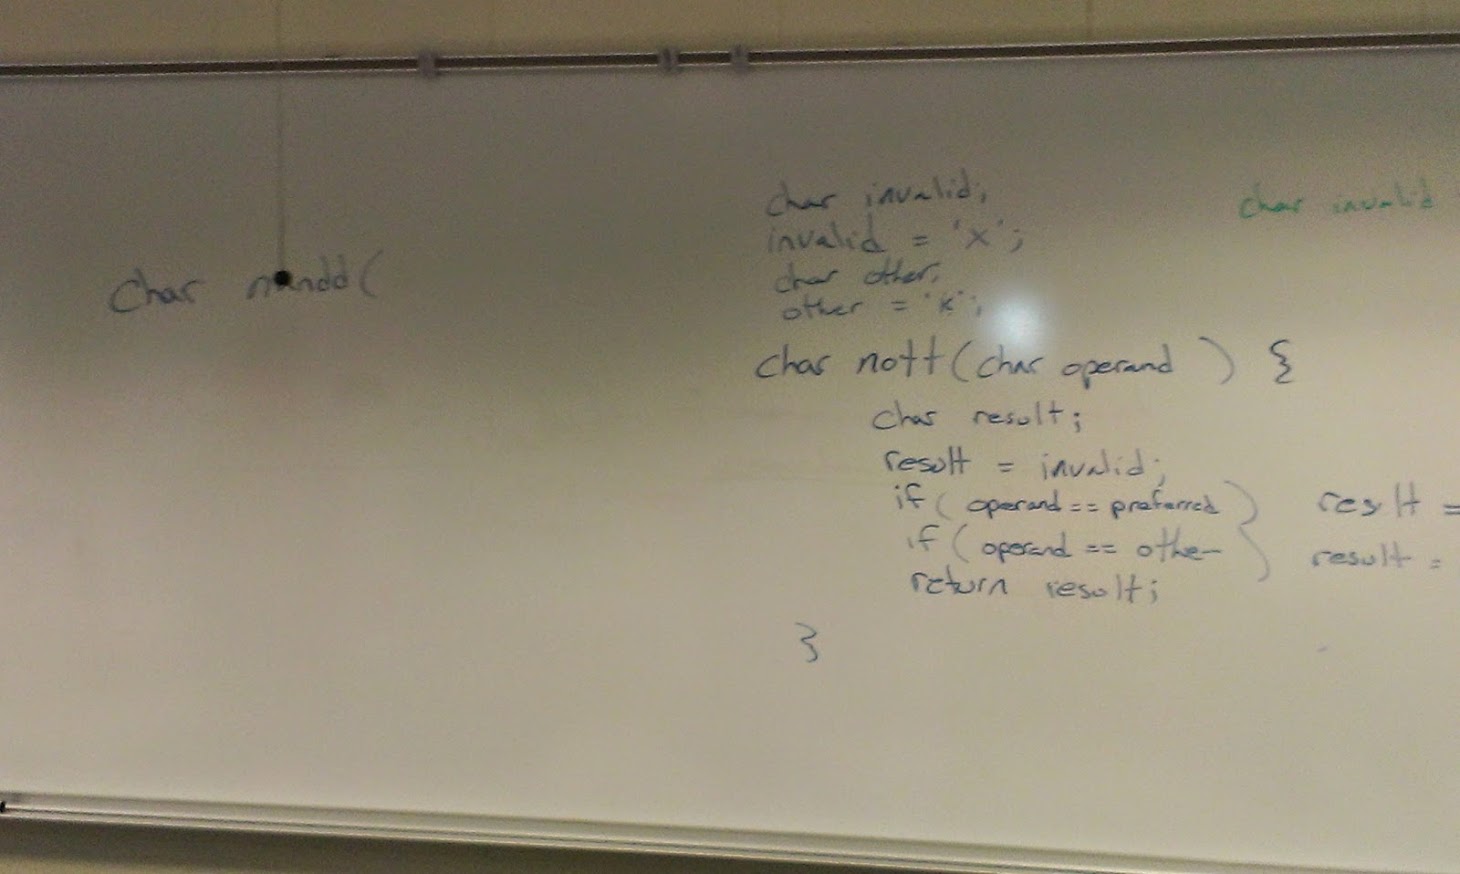 char nandd(
char invalid;
invalid = 'X';
char other;
other = 'K';
char nott(char operand ) {
char result;
result = invalid;
if( operand == preferred ) result =
if( operand == other ) result =
return result;
}
char invalid